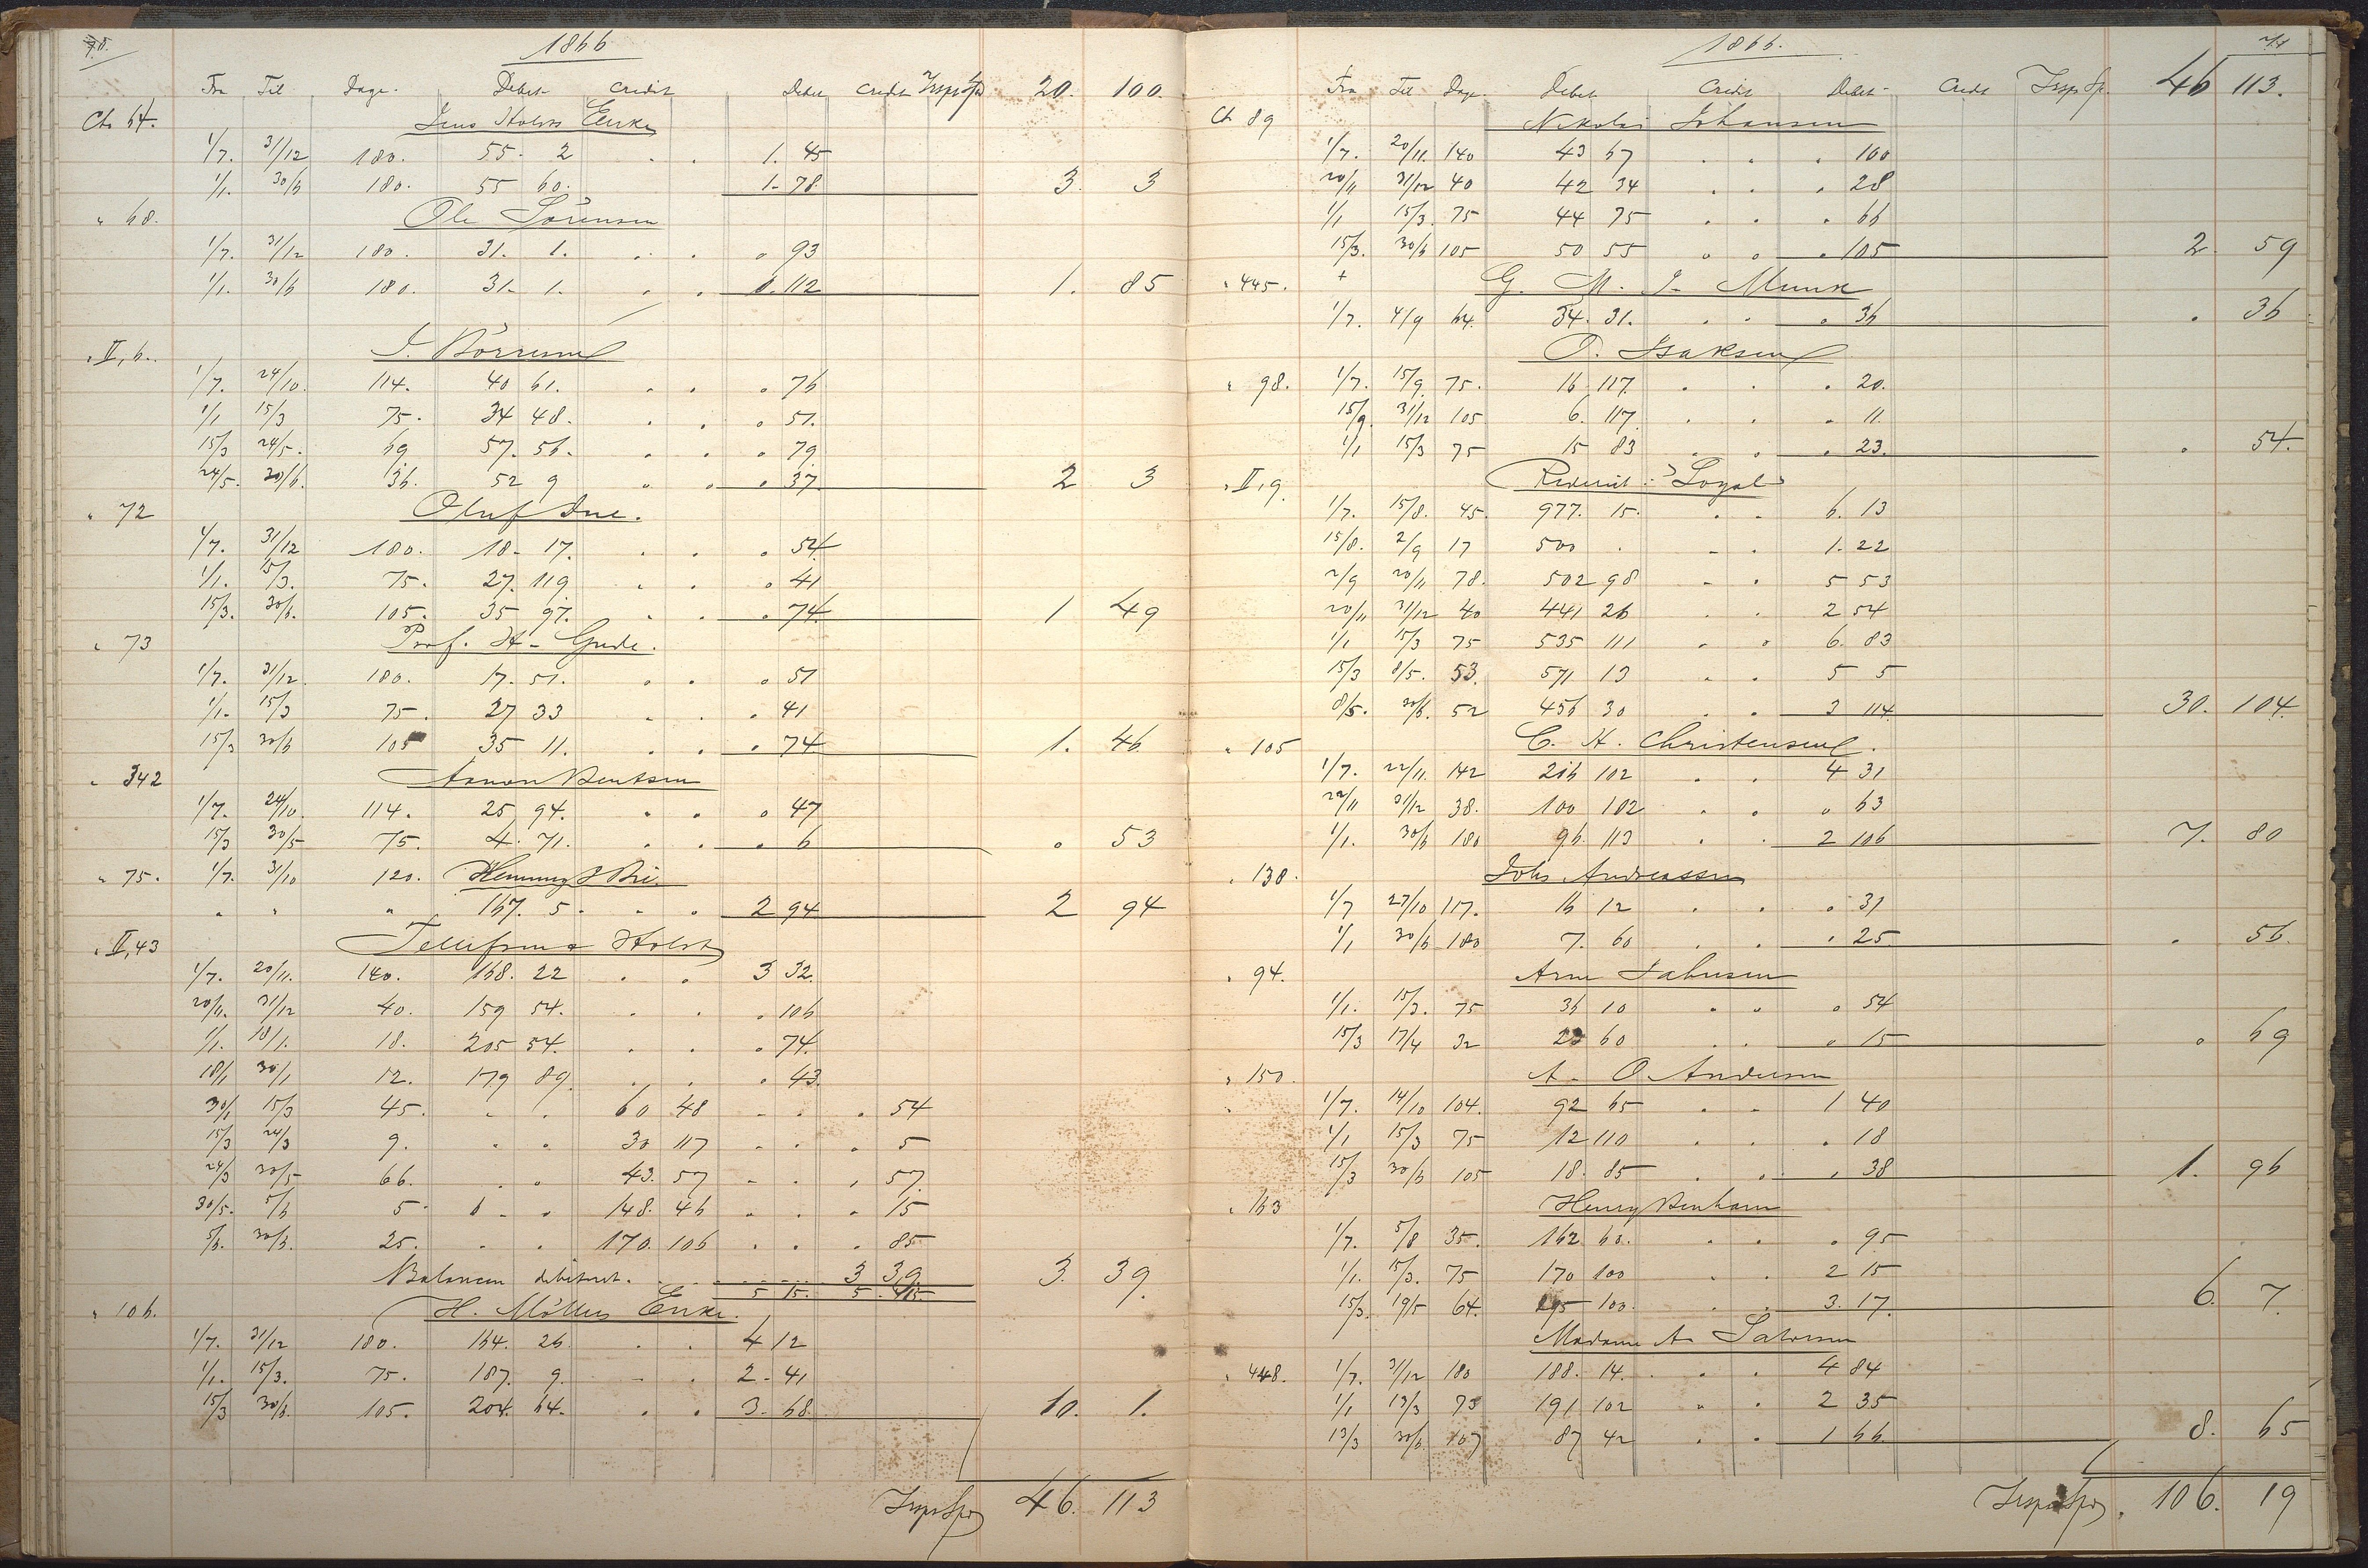 1866
Fra Til Dage. Debet Credit Debet Credit Trsp Spd 20. 100.
Cto 64. Jens Holsts Enke
1/7. 31/12 180. 55. 2 . . 1. 45
1/1. 30/6 180. 55 60. 1. 78 3. 3
" 68. Ole Sörensen
1/7. 31/12 180. 31. 1. . . " 93
1/1. 30/6 180. 31. 1. . . 0. 112 1. 85
" II, 6. J. Börresen
1/7. 24/10. 114. 40 61. . . " 76
1/1 15/3 75. 34 48. . . " 51.
15/3 24/5. 69 57. 56. . . " 79
24/5. 30/6. 36. 52 9 " " " 37. 2 3
" 72 Oluf Due.
1/7. 31/12 180. 18. 17. . . " 54.
1/1. 15/3. 75. 27. 119 . . " 41
15/3. 30/6. 105. 35 97. . . " 74. 1 49
" 73 Prof. H. Gude.
1/7. 31/12. 180. 17. 51. . . " 51
1/1. 15/3 75. 27 33 . . " 41
15/3 30/6 105 35 11. . . " 74 1. 46
" 342 Aanon Bentsen
1/7. 24/10. 114. 25 94. . . " 47
15/3 30/5 75. 4. 71. . . " 6 " 53
" 75. 1/7. 31/10 120. Henning
" " " 167. 5. . . 2 94 2 94
" II, 43 Tellefsen & Holst
1/7. 20/11. 140. 168. 22 . . 3 32.
20/11. 31/12 40. 159 54. . . " 106
1/1. 18/1. 18. 205 54. . . " 74.
18/1 30/1 12. 179 89. . . " 43.
30/1 15/3 45. . . 60 48 . . " 54
15/3 24/3 9. . . 30 117 . . " 5
24/3 30/5 66. . . 43. 57 . . " 57.
30/5. 5/6 5. . . 148. 46 . . " 15
5/6. 30/6. 25. . . 170. 106 . . " 85
Balancen debiteret. 3 39. 3. 39.
5 15. 5. 15.
" 106. H. Möllers Enke.
1/7. 31/12 180. 164. 26. . . 4 12
1/1. 15/3. 75. 187. 9. . . 2. 41
15/3 30/6. 105. 204. 64. . . 3. 68 10. 1.
Trsp Spd 46. 113
1866.
Fra Til Dage. Debet Credit Debet Credit Trsp Sp. 46 113.
Ct 89 Nikolai Johansen
1/7. 20/11. 140 43 67 . . " 100
20/11 31/12 40 42 34 . . " 28
1/1 15/3. 75 44 75 . . " 66
15/3. 30/6 105 50 55 " " " 105 2. 59
" 445. + G. M. J. Munk
1/7. 4/9 64. 34. 31. . . " 36 " 36
O. Isaksen
" 98. 1/7. 15/9. 75. 16 117. . . " 20.
15/9. 31/12 105 6. 117. . . " 11.
1/1 15/3 75 15 83 . . " 23. " 54.
" II, 9.
1/7. 15/8. 45. 977. 15. . . 6. 13
15/8. 2/9 17 500 . . . 1. 22
2/9 20/11 78. 502 98 . . 5 53
20/11 31/12 40 441 26 . . 2 54
1/1 15/3 75 535 111 . . 6. 83
15/3 8/5. 53. 571 13 . . 5 5
8/5. 30/6. 52 456 30 . . 3 114 30. 104.
" 105 C. H. Christensen.
1/7. 22/11. 142 216 102 . . 4 31
22/11 31/12 38. 100 102 . . " 63
1/1. 30/6 180 96. 113 . . 2 106 7. 80
" 138. Johs Andreassen
1/7 27/10 117. 16 12 . . " 31
1/1 30/6 180 7. 60 . . " 25 " 56.
" 94. Arne Jahnsen
1/1. 15/3. 75 36 10 . . " 54
15/3 17/4 32 23 60 . . " 15 " 69
" 150. A. O. Andersen
1/7. 14/10 104. 92 65 . . 1 40
1/1 15/3 75 12 110 . . " 18
15/3 30/6 105 18. 85 . . " 38 1. 96
" 163 Henry Benham
1/7. 5/8 35. 162 60. . . " 95
1/1. 15/3. 75 170 100 . . 2 15
15/3. 19/5 64. 100. . . 3. 17. 6. 7.
Madame A.
" 448. 1/7. 31/12 180 188. 14. . . 4 84
1/1 13/3 73 191 102 " . 2 35
13/3 30/6 107 87 42 . . 1 66. 8. 65
Trsp Spd. 106. 19